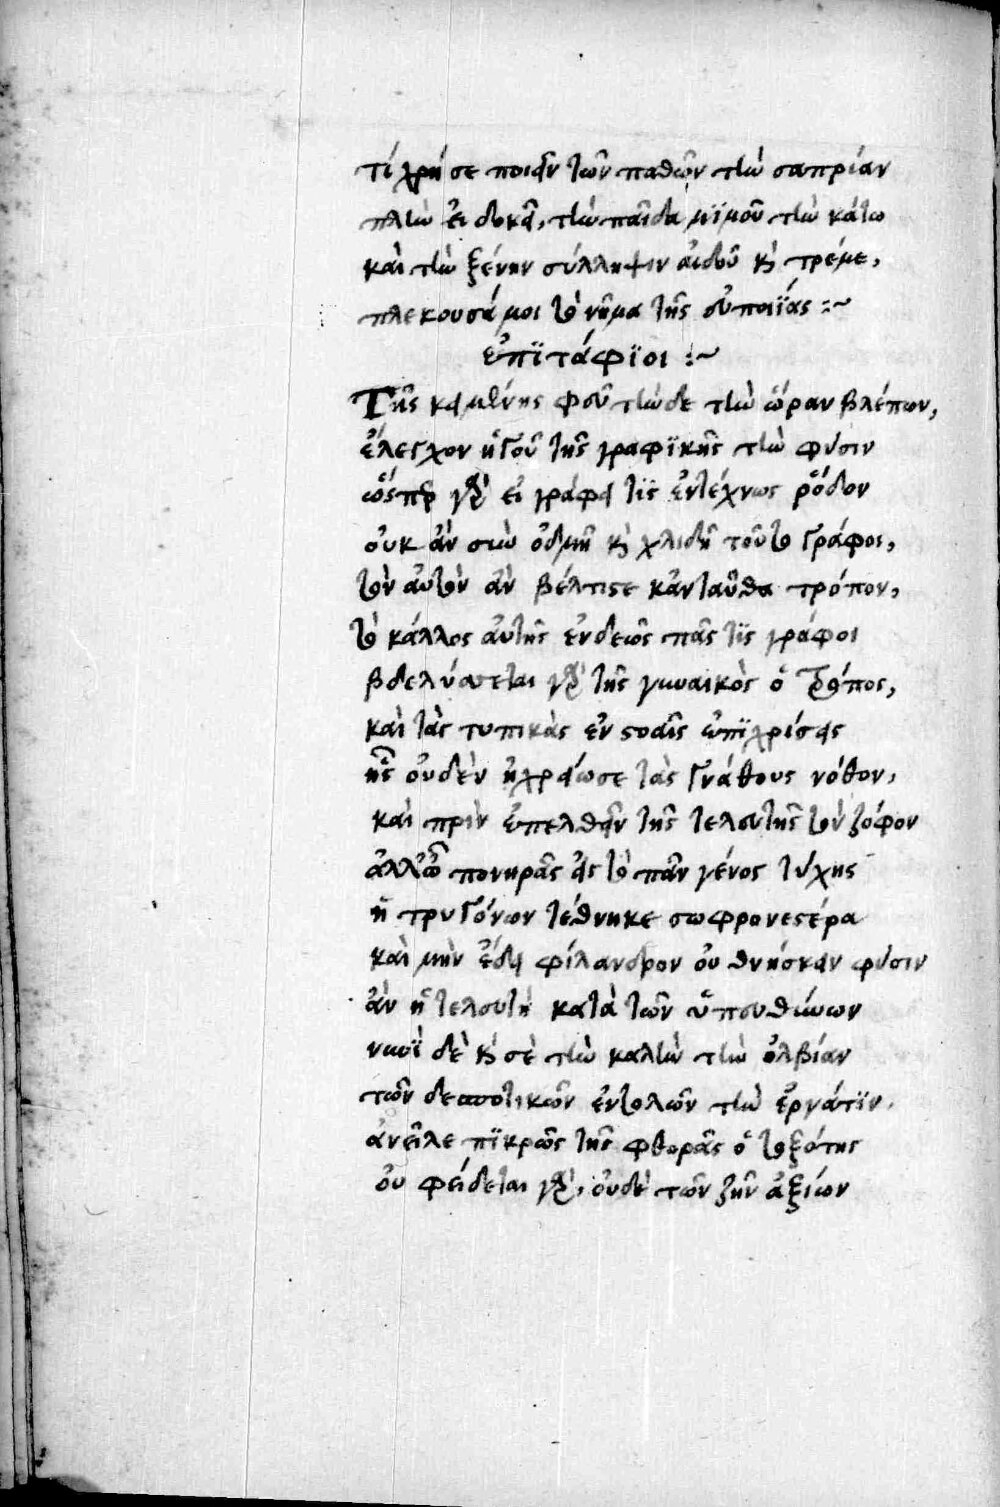 τί χρή σε ποιεῖν τῶν παθῶν τὴν σαπρίαν
πλὴν εἰ δοκεῖ, τὴν παῖδα μϊμοῦ τὴν κάτω
καὶ τὴν ξένην σύλληψιν αἰδοῦ καὶ τρέμε,
πλεκουσά μοι τὸ νῆμα τῆς εὐποιΐας :~
ἐπϊτάφϊοι :~
Τῆς κειμένης φεῦ τήνδε τὴν ὥραν βλέπων,
ἔλεγχον ἡγοῦ τῆς γραφϊκῆς τὴν φύσιν
ὥσπερ γὰρ εἰ γράφει τίς ἐντέχνως ῥόδον
οὐκ ἂν σὺν ὀδμῇ καὶ χλιδῇ τοῦτο γράφοι,
τὸν αὐτὸν ἂν βέλτιστε κἀνταῦθα τρόπον,
τὸ κάλλος αὐτῆς ἐνδεῶς πᾶς τϊς γράφοι
βδελύττεται γὰρ τῆς γυναικὸς ὁ τρόπος,
καὶ τὰς τυπικὰς ἐν στοαῖς ἐπϊχρίσεις
ἧς οὐδὲν ἠχρείωσε τὰς γνάθους νόθον,
καὶ πρὶν ἐπελθεῖν τῆς τελευτῆς τὸν ζόφον
ἀλλ' ὢ πονηρᾶς εἰς τὸ πᾶν γένος τύχης
ἡ τρυγόνων τέθνηκε σωφρονεστέρα
καὶ μὴν ἔδει φίλανδρον οὐ θνήσκειν φύσιν
ἂν ἡ τελευτὴ κατὰ τῶν ὑπευθύνων
νυνῒ δὲ καὶ σὲ τὴν καλὴν τὴν ὀλβίαν
τῶν δεσποτικῶν ἐντολῶν τὴν ἐργάτϊν.
ἀνεῖλε πϊκρῶς τῆς φθορᾶς ὁ τοξότης
οὐ φείδεται γὰρ, οὐδὲ τῶν ζῆν ἀξίων